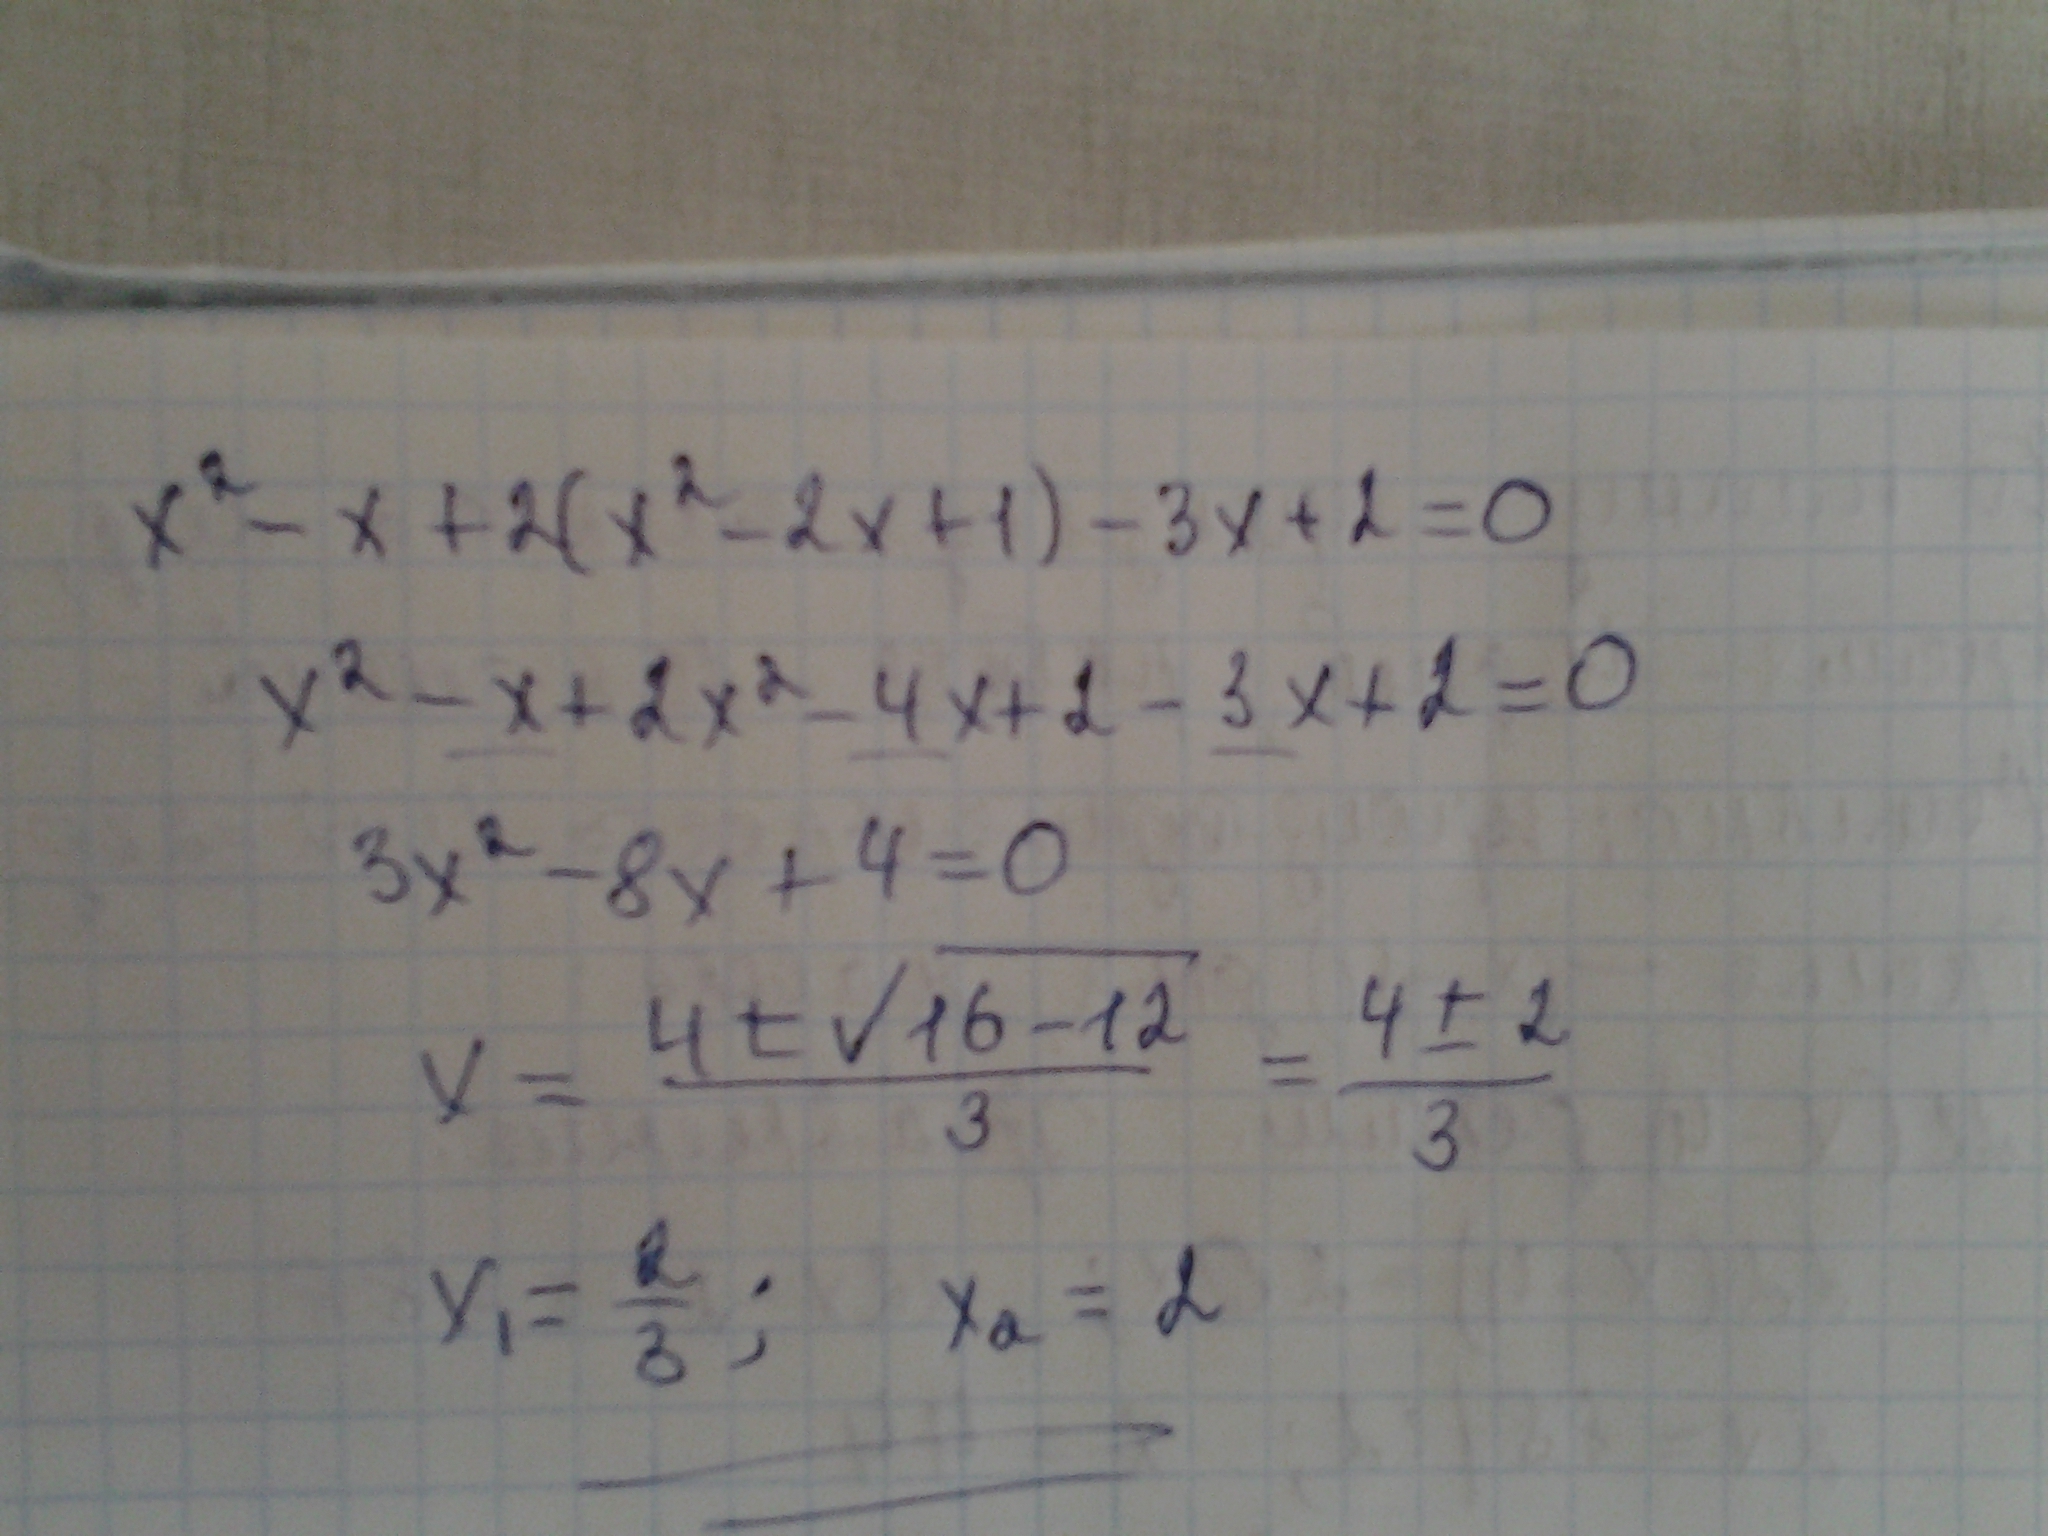 x² - x + 2(x² - 2x + 1) - 3x + 2 = 0
x² - x + 2x² - 4x + 2 - 3x + 2 = 0
3x² - 8x + 4 = 0
x = (4 ± √(16 - 12))/3 = (4 ± 2)/3
x₁ = 2/3 ; x₂ = 2